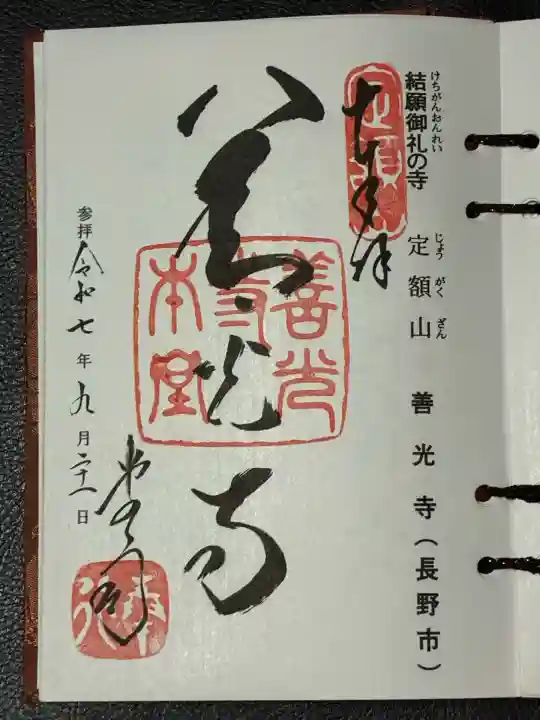 けちがんおんれい
結願御礼の寺
じょうがくざん
定額山 善光寺(長野市)
定額山
奉拝
善光寺
善光寺本堂
参拝 令和七年九月二十一日